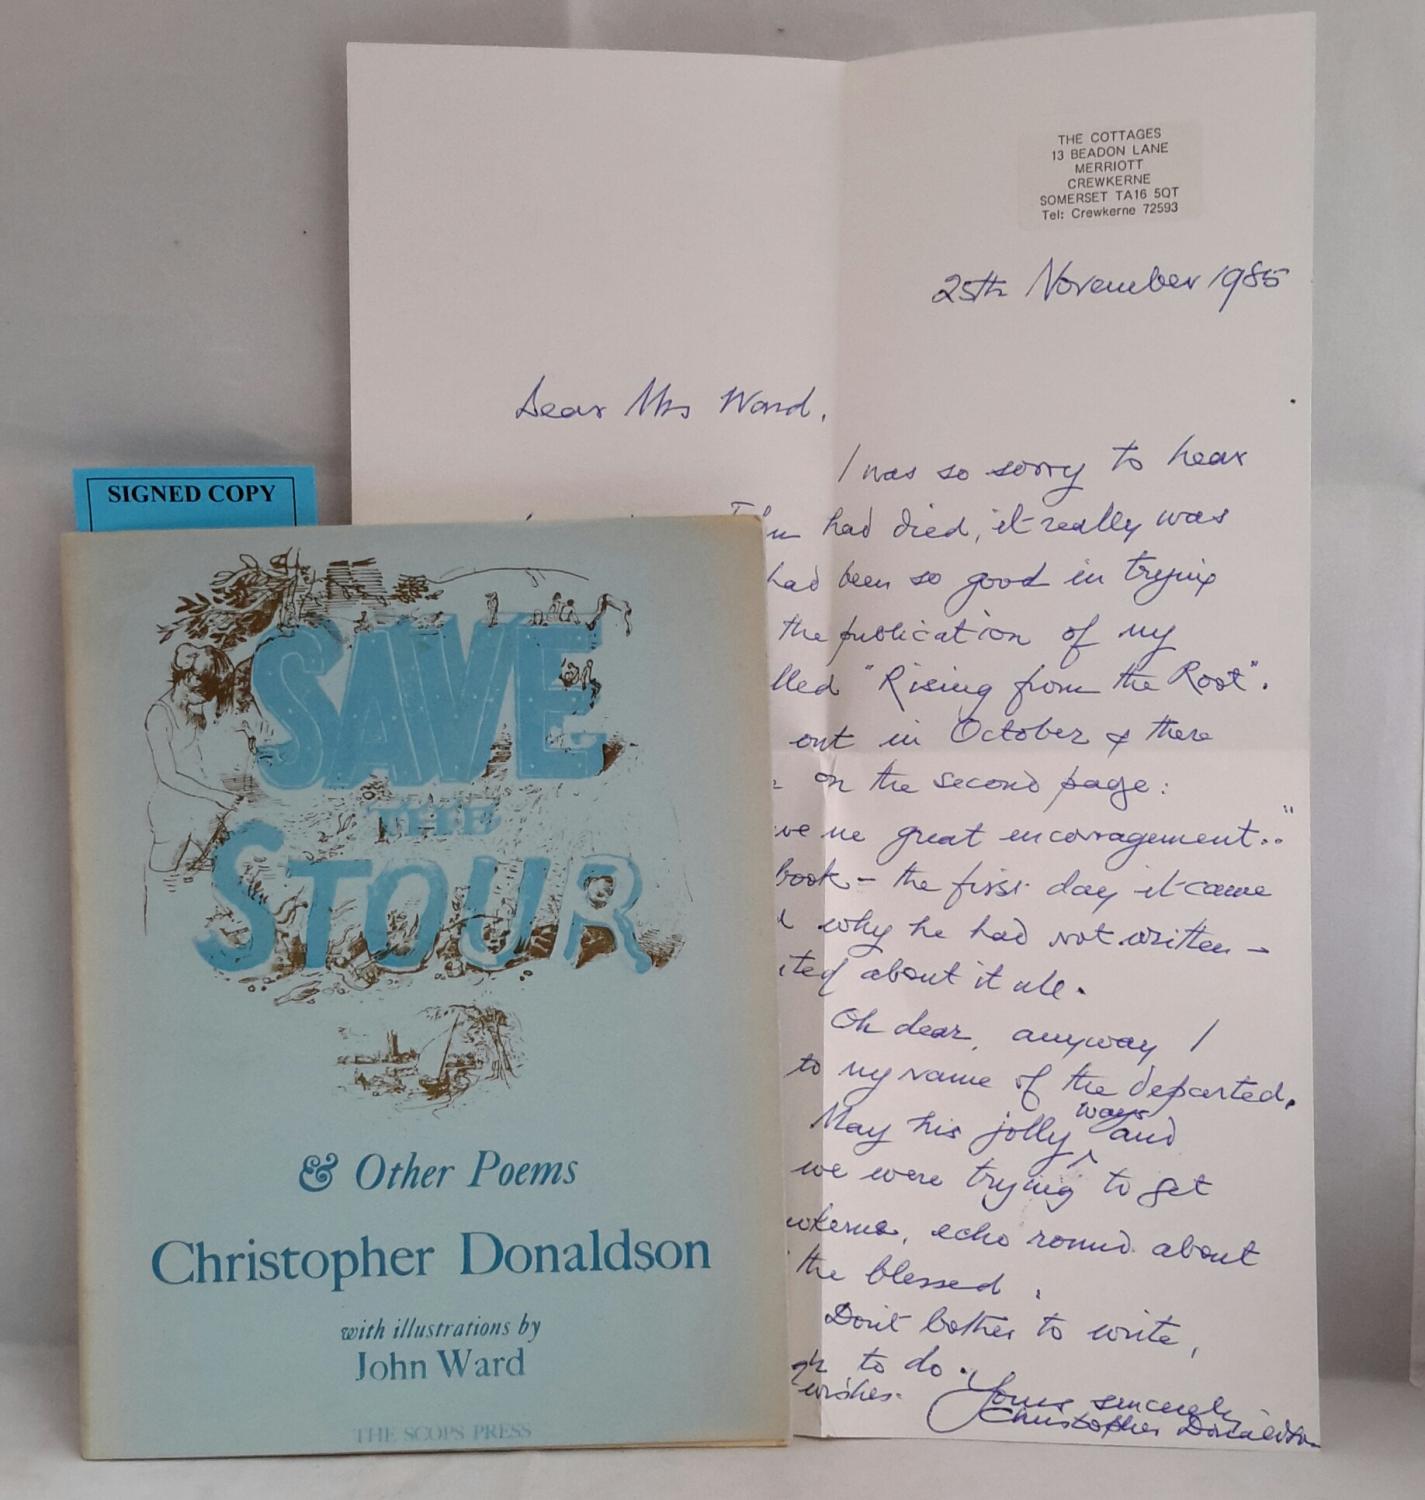 THE COTTAGES
13 BEADON LANE
MERRIOTT
CREWKERNE
SOMERSET TA16 5QT
Tel: Crewkerne 72593
25th November 1985
Dear Mrs Ward,
I was so sorry to hear
had died, it really was
had been so good in trying
the publication of my
lled "Rising from the Root".
out in October & there
on the second page:
ve me great encouragement.."
book - the first day it came
why he had not written -
ited about it all.
Oh dear, anyway I
to my name of the departed.
May his jolly ways and
we were trying to get
wkerne, echo round about
the blessed.
Don't bother to write,
to do.
wishes.
Yours sincerely
Christopher Donaldson
SIGNED COPY
SAVE
THE
STOUR
& Other Poems
Christopher Donaldson
with illustrations by
John Ward
THE SCOPS PRESS